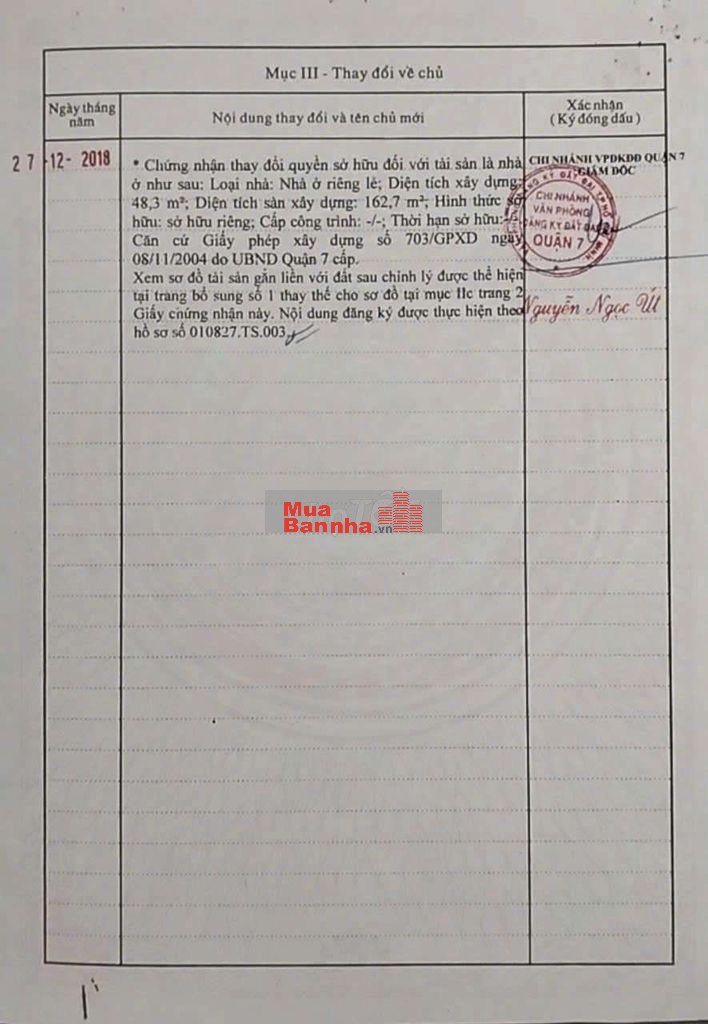 Mục III - Thay đổi về chủ
Ngày tháng năm
Nội dung thay đổi và tên chủ mới
Xác nhận
( Ký đóng dấu )
27-12-2018
* Chứng nhận thay đổi quyền sở hữu đối với tài sản là nhà
ở như sau: Loại nhà: Nhà ở riêng lẻ; Diện tích xây dựng:
48,3 m²; Diện tích sàn xây dựng: 162,7 m²; Hình thức sở
hữu: sở hữu riêng; Cấp công trình: -/-; Thời hạn sở hữu:-/-.
Căn cứ Giấy phép xây dựng số 703/GPXD ngày
08/11/2004 do UBND Quận 7 cấp.
Xem sơ đồ tài sản gắn liền với đất sau chỉnh lý được thể hiện
tại trang bổ sung số 1 thay thế cho sơ đồ tại mục IIc trang 2
Giấy chứng nhận này. Nội dung đăng ký được thực hiện theo
hồ sơ số 010827.TS.003
CHI NHÁNH VPĐKĐĐ QUẬN 7
GIÁM ĐỐC
CHI NHÁNH
VĂN PHÒNG
ĐĂNG KÝ ĐẤT ĐAI
QUẬN 7
Nguyễn Ngọc Út
Mua
Bannha.vn